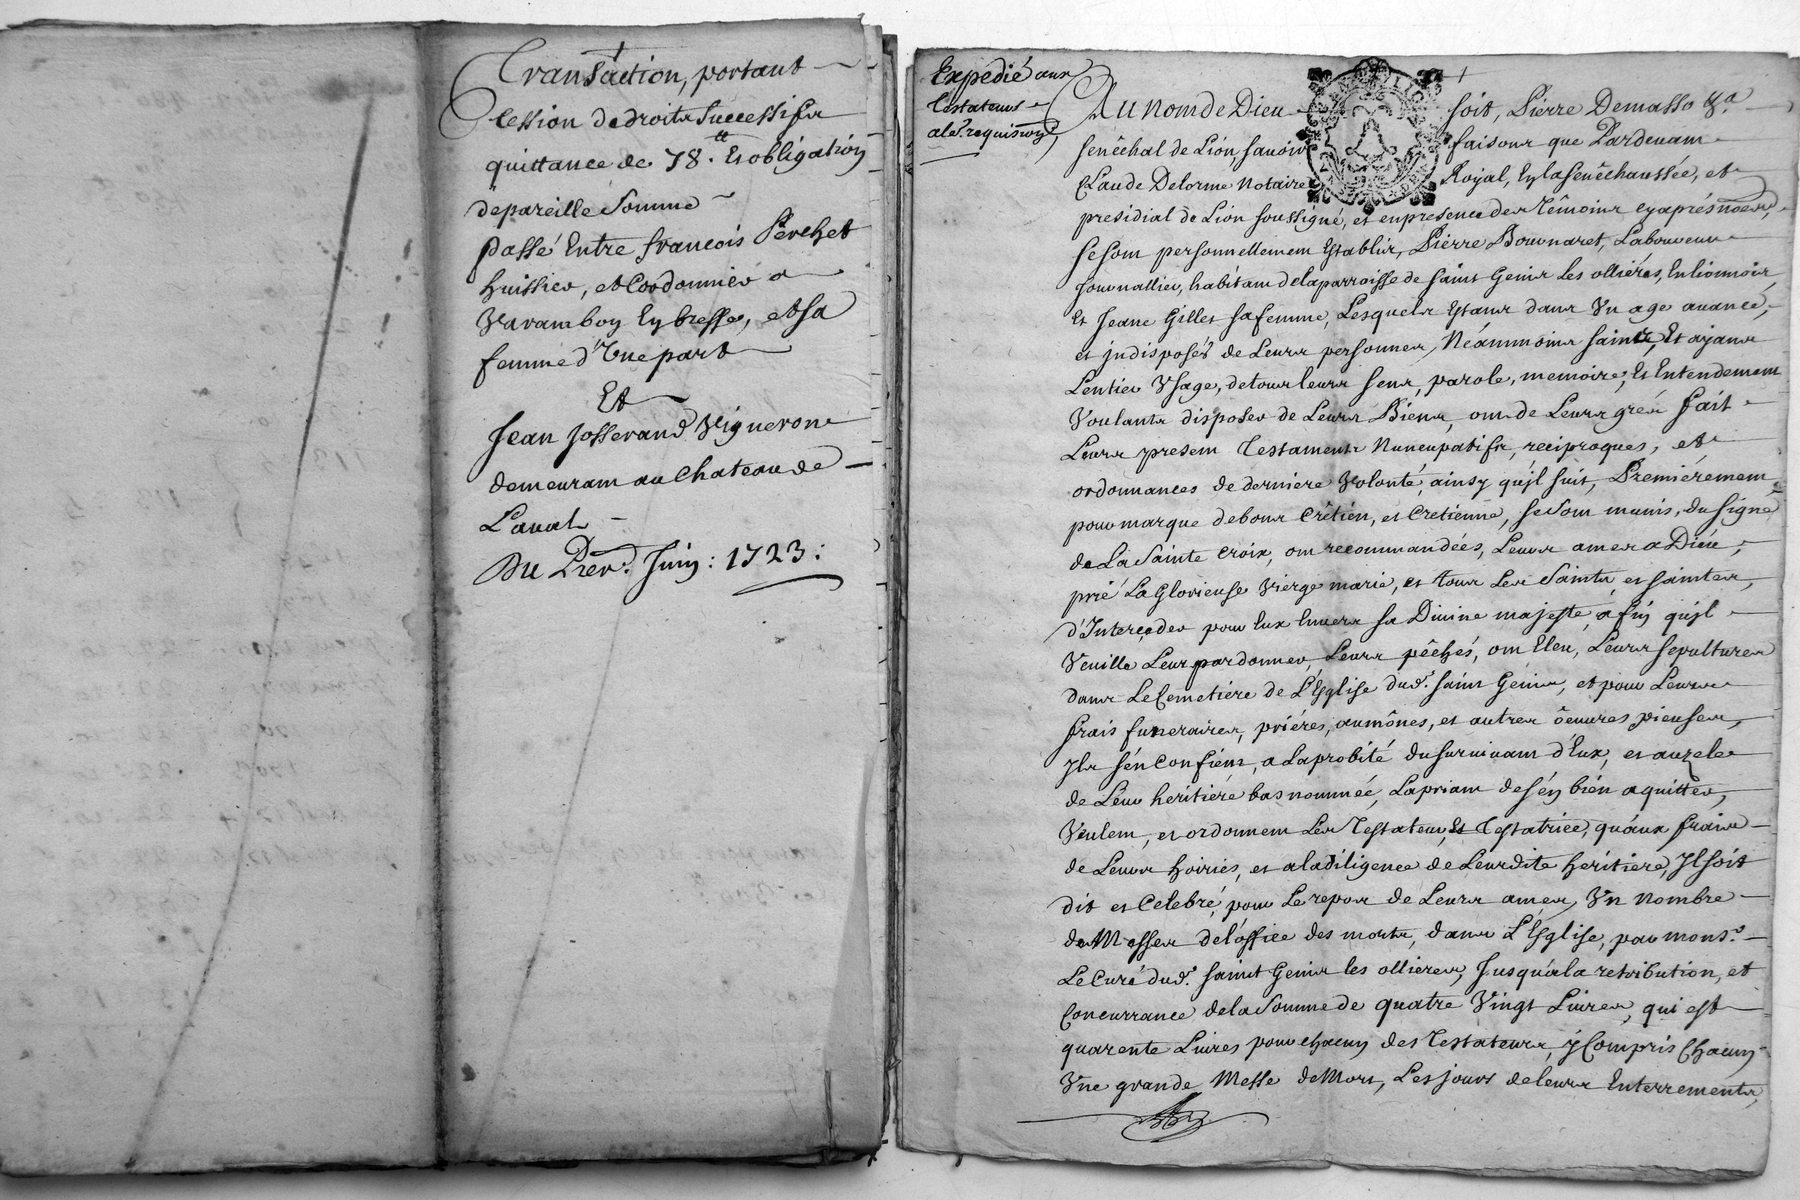 Transaction, portant
Cession de droits successifs
quittance de 78.tt Et obligation
de pareille somme
passé Entre francois Perchet
huissier, et Cordonnier a
Varambon En bresse, et sa
femme d'Une part
Et
Jean Josserand Vigneron
demeurant au Chateau de
Laval
Du Prer. Juin : 1723 :
Expedié aux
testateurs
a le.r requisiōn
Au nom de Dieu soit, Pierre Demasso &a
senêchal de Lion, savoir faisons que Pardevant
Claude Delorme Notaire Royal, En la senêchaussée, et
presidial de Lion soussigné, et en presence des têmoins cy aprés nōes,
se sont personnellement Establis, Pierre Bournaret, Laboureur
journallier, habitant de la parroisse de saint Genis les olliéres, En lionnois
Et Jeane Gillet sa femme, Lesquels Etans dans Un age avancé,
et indisposés de Leurs personnes, Néammoins sains, Et ajans
L'entier Usage, de tous leurs sens, parole, memoire, Et Entendement
Voulants disposer de Leurs Biens, ont de Leurs grés fait
Leurs present Testaments Nuncupatifs, reciproques, et
ordonnances de derniere Volonté, ainsy qu'jl suit, Premiérement
pour marque de bons Crêtien, et Cretienne, se sont munis, du signe
de La Sainte Croix, ont recommandées, Leurs ames a Diéu,
prié La Glorieuse Vierge marie, et tous Les Saints, et saintes,
d'Interçeder pour Eux Envers sa Divine majesté, afin qu'jl
Veuille Leur pardonner, Leurs pêchés, ont Eleu, Leurs sepultures
dans Le Cemetiére de L'Eglise dud.t saint Genis, et pour Leurs
frais funeraires, priéres, aumônes, et autres ôeuvres pieuses,
Jls s'én Confient, a La probité du survivant d'Eux, et au zele
de Léur heritiére bas nommée, La priant de s'én bién aquitter,
Veulent, et ordonnent Les Testateur, Et Testatrice, qu'aux frais
de Leurs hoiries, et a la diligence de Leurdite heritiere, Jl soit
dit et Celebré, pour Le repos de Leurs ames, Un nombre
de Messes de l'office des morts, dans L'Eglise, par mons.r
Le Curé dud.t saint Genis les ollieres, Jusqu'a la retribution, et
Concurrance de la Somme de quatre Vingt Livres, qui est
quarente Livres pour chacun des Testateurs, y Compris Chacun
Une grande Messe de Mors, Les jours de leurs Enterrements,